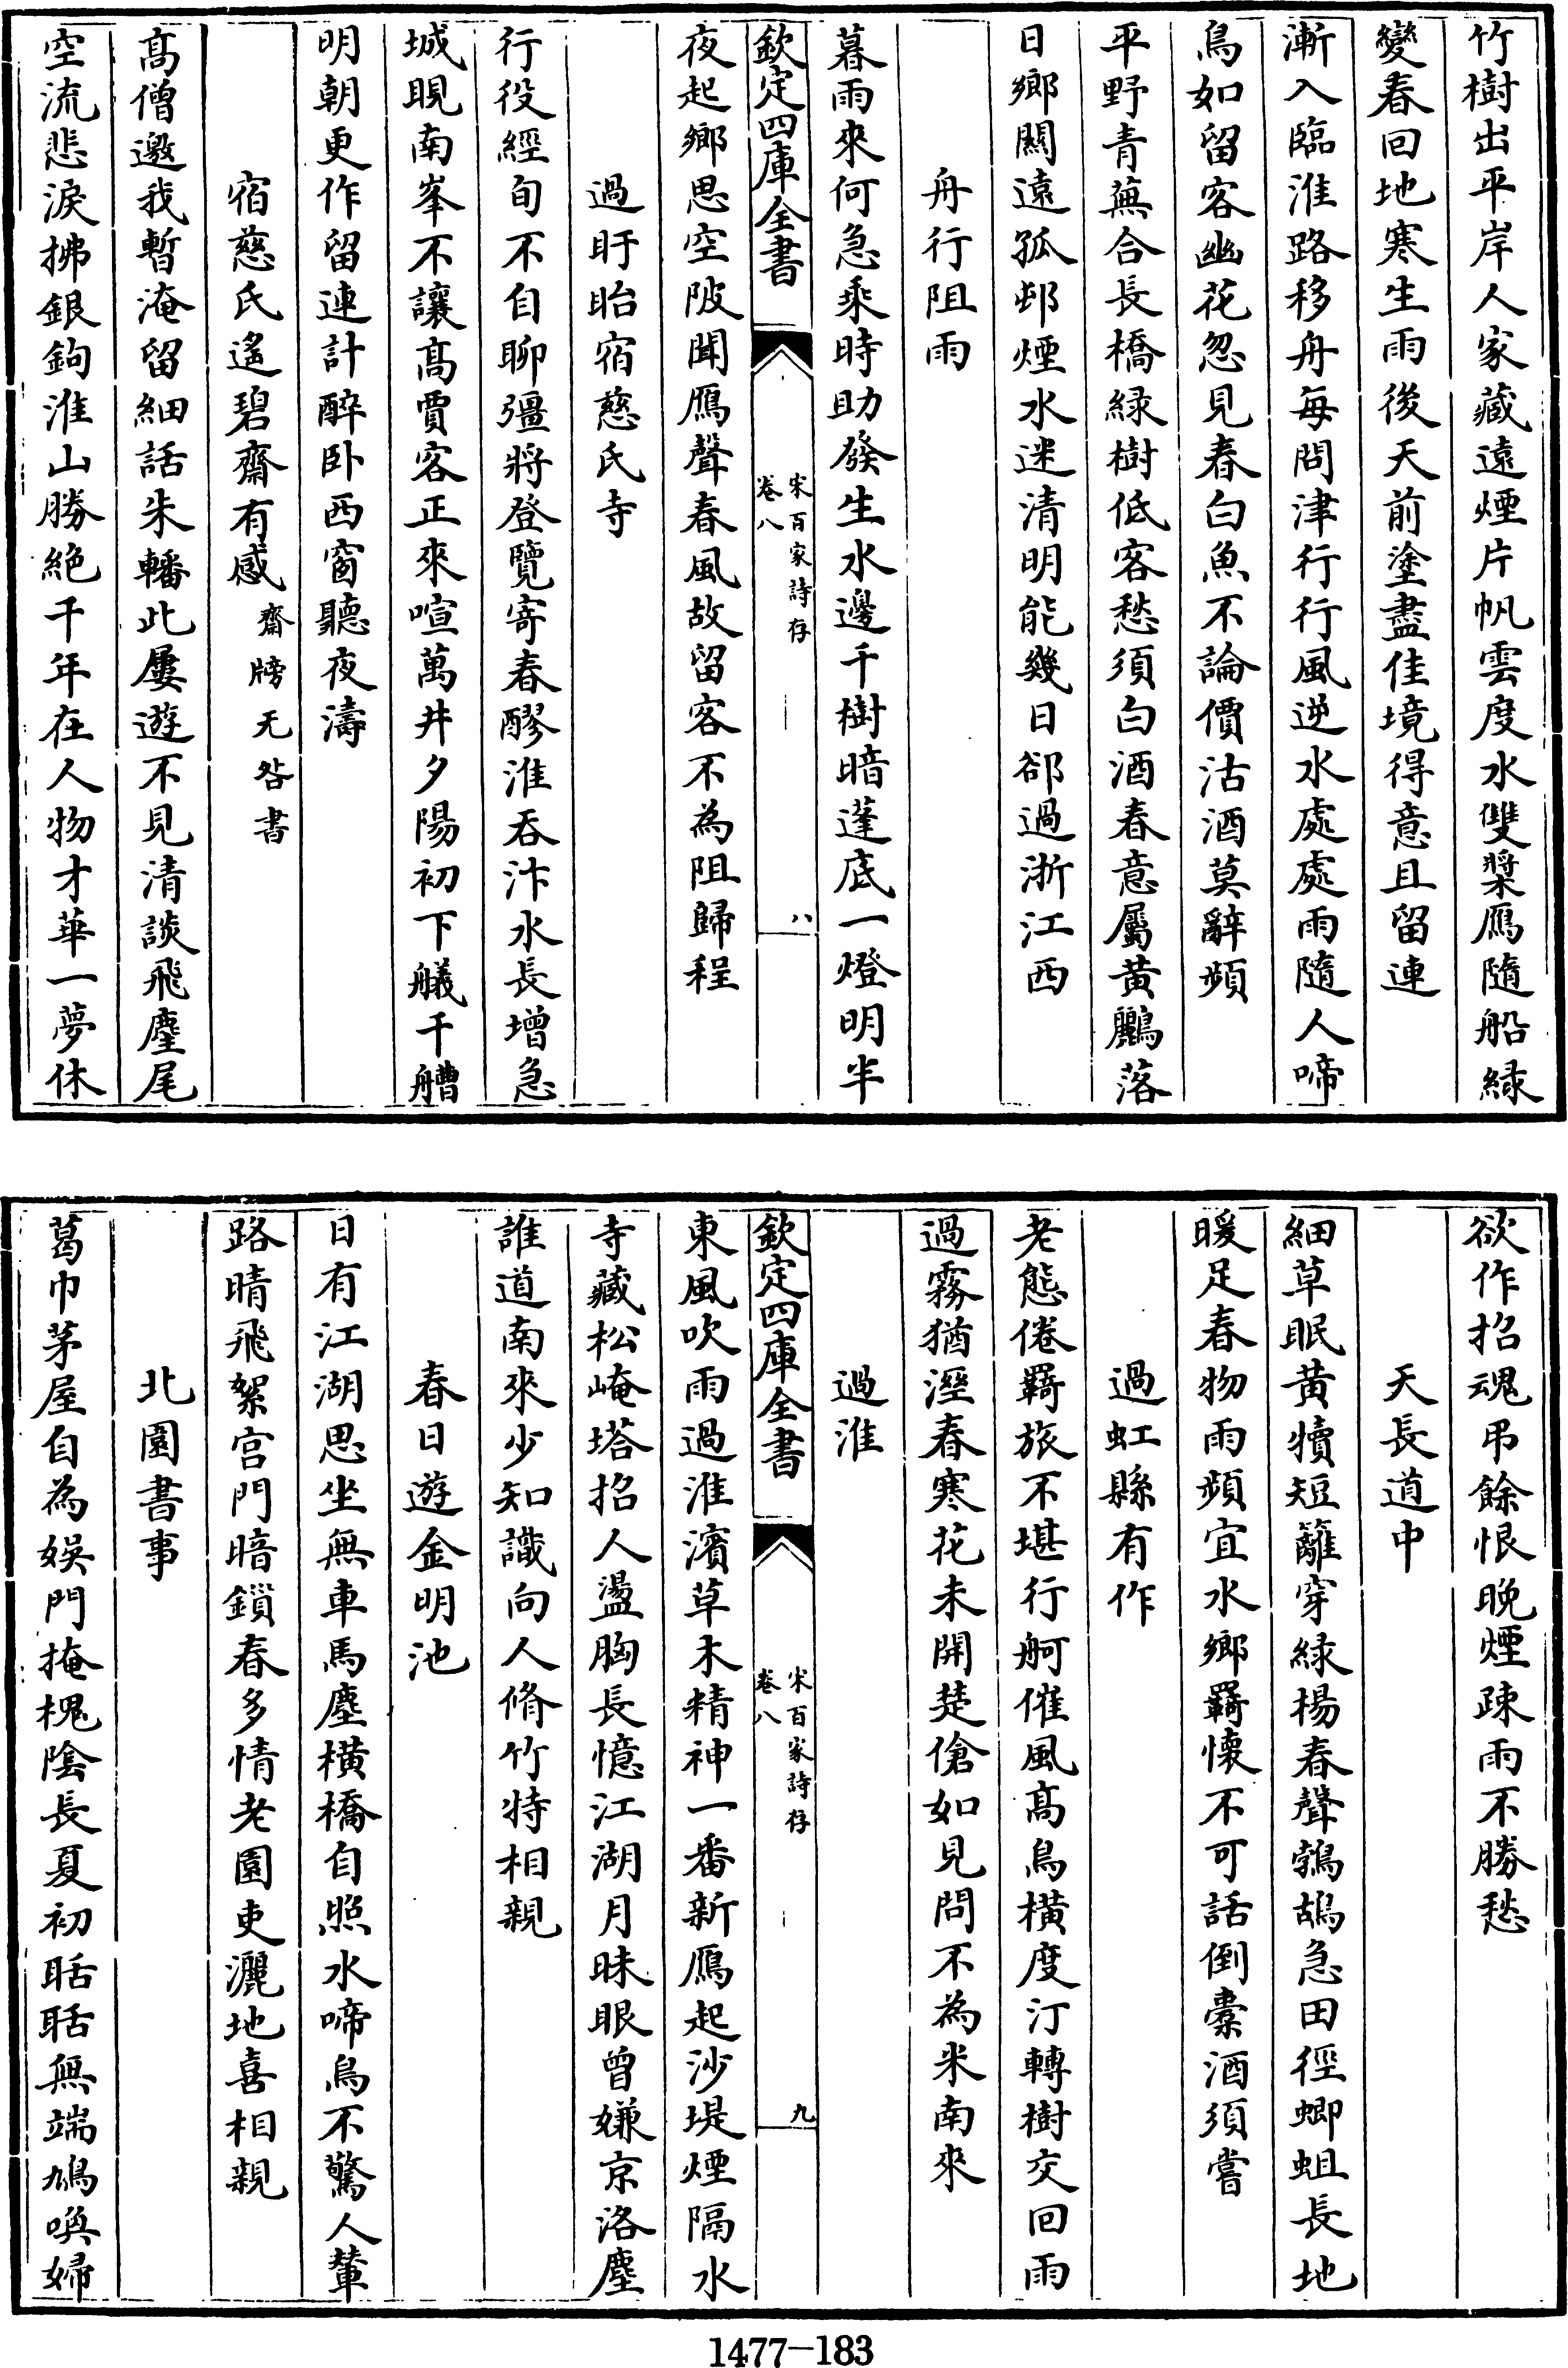 竹樹出平岸人家藏遠煙片帆雲度水雙槳鴈隨船緑
變春回地寒生雨後天前塗盡佳境得意且留連
漸入臨淮路移舟每問津行行風逆水處處雨隨人啼
鳥如留客幽花忽見春白魚不論價沽酒莫辭頻
平野青蕪合長橋緑樹低客愁須白酒春意屬黄鸝落
日鄉關遠孤邨煙水迷清明能幾日郤過浙江西
舟行阻雨
暮雨來何急乘時助發生水邊千樹暗蓬底一燈明半
欽定四庫全書
宋百家詩存
卷八
八
夜起鄉思空陂聞鴈聲春風故留客不為阻歸程
過盱眙宿慈氏寺
行役經旬不自聊彊將登覽寄春醪淮吞汴水長增急
城睍南峯不讓髙賈客正來喧萬井夕陽初下艤千艚
明朝更作留連計醉卧西窗聽夜濤
宿慈氏遙碧齋有感齋牓无咎書
髙僧邀我暫淹留細話朱轓此屢遊不見清談飛麈尾
空流悲淚拂銀鉤淮山勝絶千年在人物才華一夢休
欲作招魂弔餘恨晚煙疎雨不勝愁
天長道中
細草眠黄犢短籬穿緑楊春聲鵓鴣急田徑蝍蛆長地
暖足春物雨頻宜水鄉羇懷不可話倒橐酒須嘗
過虹縣有作
老態倦羇旅不堪行舸催風髙鳥橫度汀轉樹交回雨
過霧猶溼春寒花未開楚傖如見問不為米南來
過淮
欽定四庫全書
宋百家詩存
卷八
九
東風吹雨過淮濱草木精神一番新鴈起沙堤煙隔水
寺藏松崦塔招人盪胸長憶江湖月眯眼曾嫌京洛塵
誰道南來少知識向人脩竹特相親
春日遊金明池
日有江湖思坐無車馬塵橫橋自照水啼鳥不驚人輦
路晴飛絮宫門暗鎖春多情老園吏灑地喜相親
北園書事
葛巾茅屋自為娱門掩槐陰長夏初聒聒無端鳩喚婦
1477—183